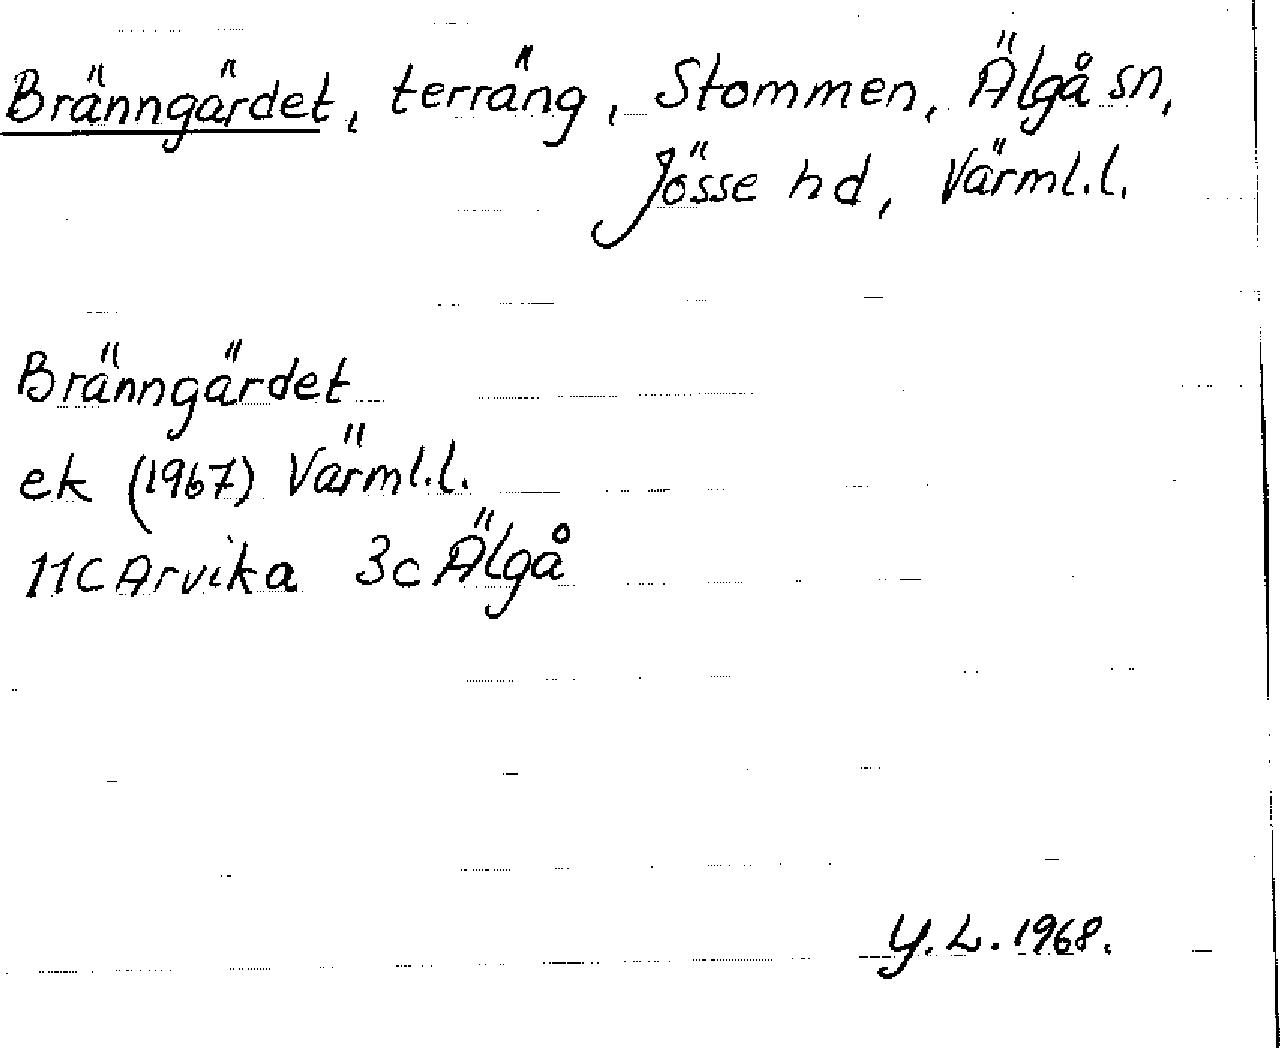 Bränngärdet, terräng, Stommen, Älgå sn,
Jösse hd, Värml.l.
Bränngärdet
ek (1967) Värml.l.
11C Arvika 3c Älgå
Y.L. 1968.